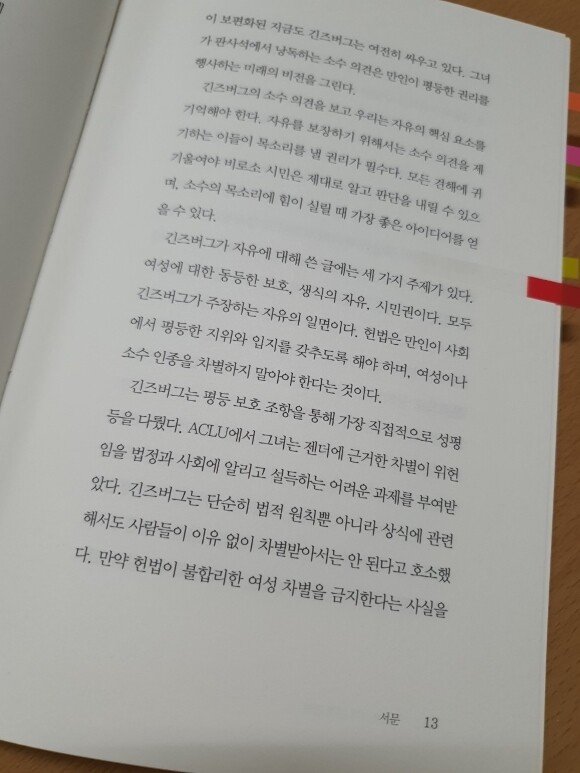 이 보편화된 지금도 긴즈버그는 여전히 싸우고 있다. 그녀
가 판사석에서 낭독하는 소수 의견은 만인이 평등한 권리를
행사하는 미래의 비전을 그린다.
긴즈버그의 소수 의견을 보고 우리는 자유의 핵심 요소를
기억해야 한다. 자유를 보장하기 위해서는 소수 의견을 제
기하는 이들이 목소리를 낼 권리가 필수다. 모든 견해에 귀
기울여야 비로소 시민은 제대로 알고 판단을 내릴 수 있으
며, 소수의 목소리에 힘이 실릴 때 가장 좋은 아이디어를 얻
을 수 있다.
긴즈버그가 자유에 대해 쓴 글에는 세 가지 주제가 있다.
여성에 대한 동등한 보호, 생식의 자유, 시민권이다. 모두
긴즈버그가 주장하는 자유의 일면이다. 헌법은 만인이 사회
에서 평등한 지위와 입지를 갖추도록 해야 하며, 여성이나
소수 인종을 차별하지 말아야 한다는 것이다.
긴즈버그는 평등 보호 조항을 통해 가장 직접적으로 성평
등을 다뤘다. ACLU에서 그녀는 젠더에 근거한 차별이 위헌
임을 법정과 사회에 알리고 설득하는 어려운 과제를 부여받
았다. 긴즈버그는 단순히 법적 원칙뿐 아니라 상식에 관련
해서도 사람들이 이유 없이 차별받아서는 안 된다고 호소했
다. 만약 헌법이 불합리한 여성 차별을 금지한다는 사실을
서문 13